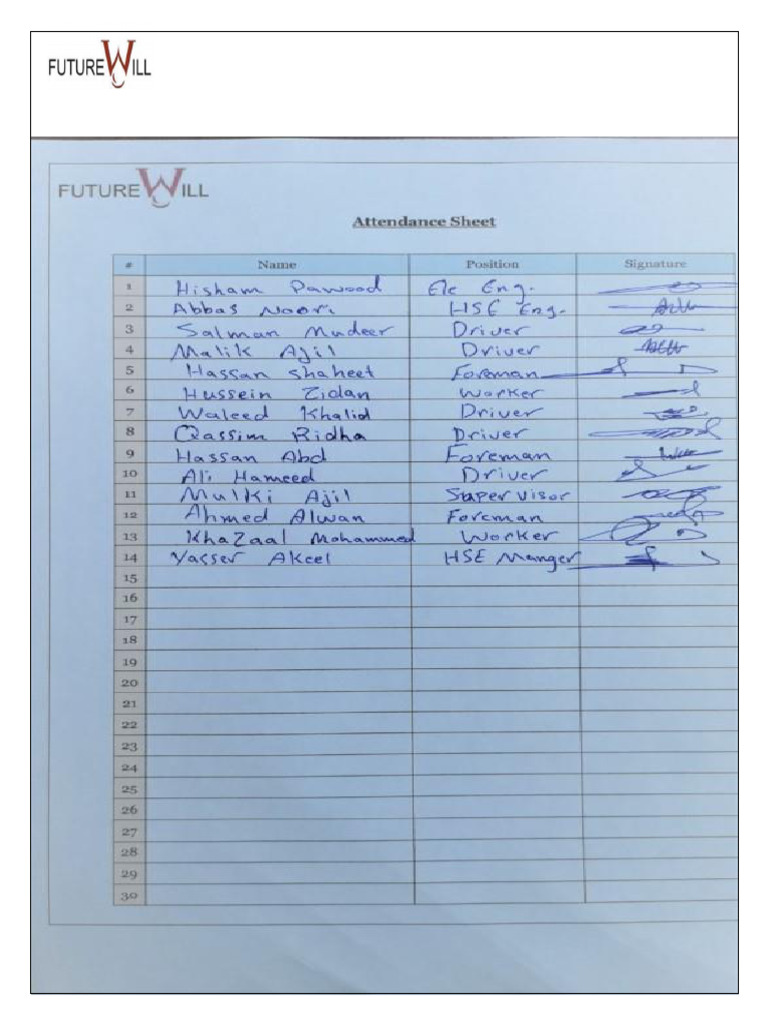 FUTURE WILL
FUTURE WILL
Attendance Sheet
# Name Position Signature
1 Hisham Dawood Ele Eng.
2 Abbas Noori HSE Eng.
3 Salman Mudeer Driver
4 Malik Ajil Driver
5 Hassan Shaheet Foreman
6 Hussein Zidan Worker
7 Waleed Khalid Driver
8 Qassim Ridha Driver
9 Hassan Abd Foreman
10 Ali Hameed Driver
11 Mulki Ajil Supervisor
12 Ahmed Alwan Foreman
13 Khazaal Mohammed Worker
14 Yasser Akeel HSE Manger
15
16
17
18
19
20
21
22
23
24
25
26
27
28
29
30